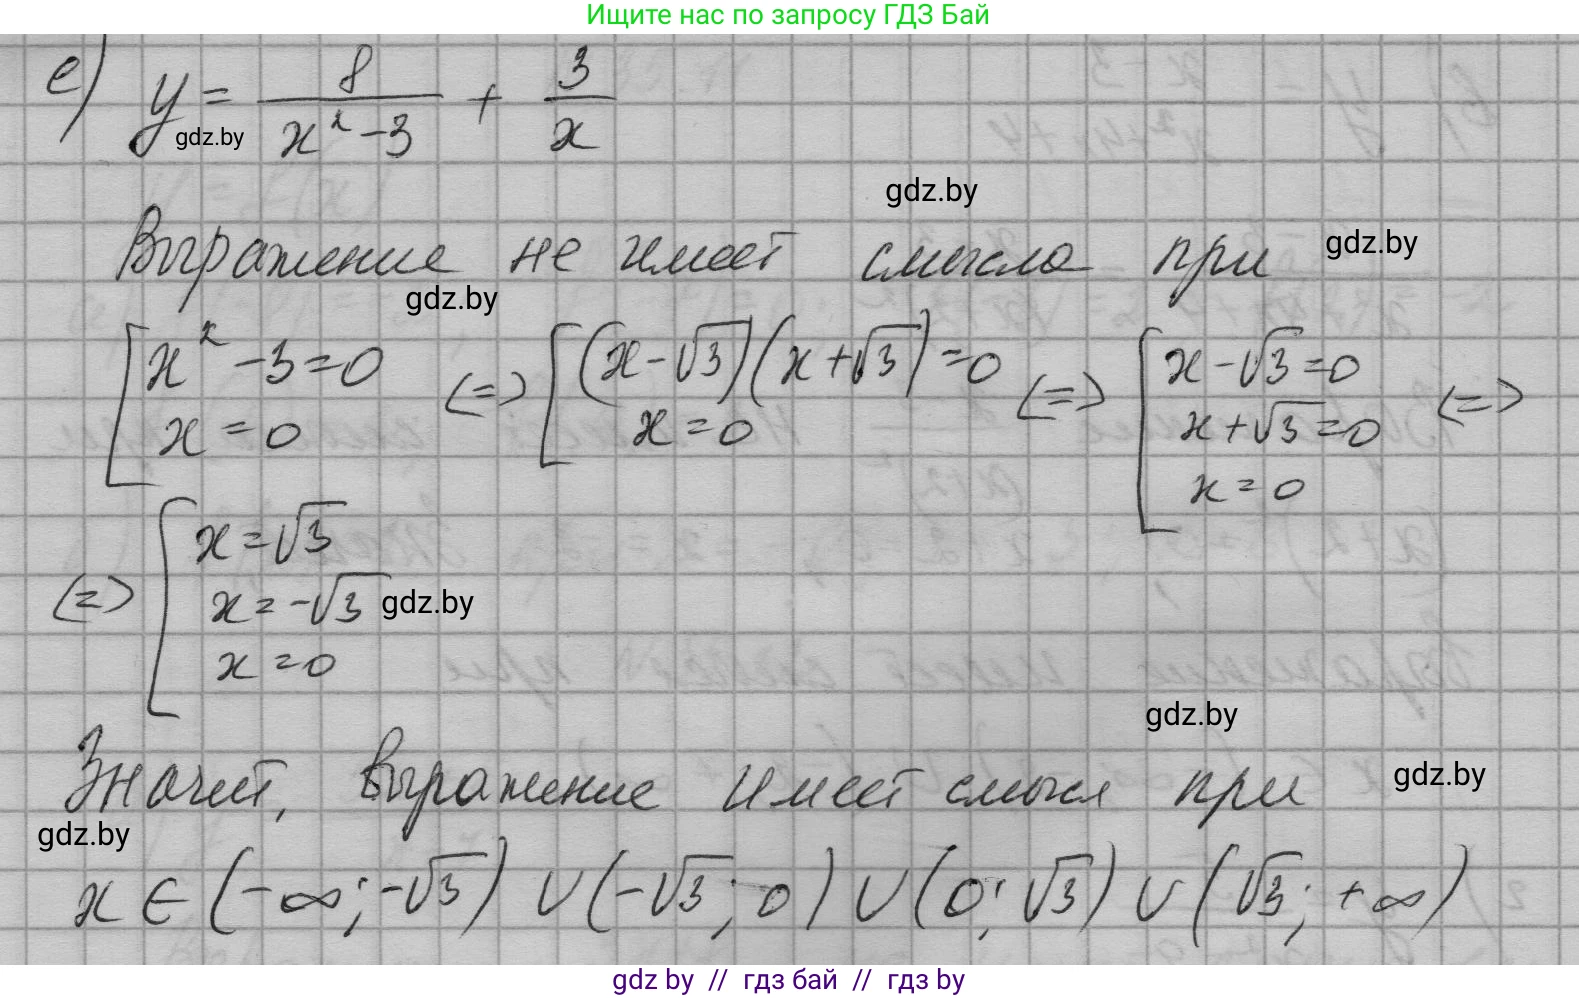 Ищите нас по запросу ГДЗ Бай
е) y = 8/(x² - 3) + 3/x
gdz.by
gdz.by
Выражение не имеет смысла при
gdz.by
gdz.by
[ x² - 3 = 0 ; x = 0 <=> [ (x - √3)(x + √3) = 0 ; x = 0 <=> [ x - √3 = 0 ; x + √3 = 0 ; x = 0 <=>
<=> [ x = √3
x = -√3 gdz.by
x = 0
gdz.by
Значит, выражение имеет смысл при
gdz.by
gdz.by
x ∈ (-∞; -√3) ∪ (-√3; 0) ∪ (0; √3) ∪ (√3; +∞)
gdz by // гдз бай // гдз by